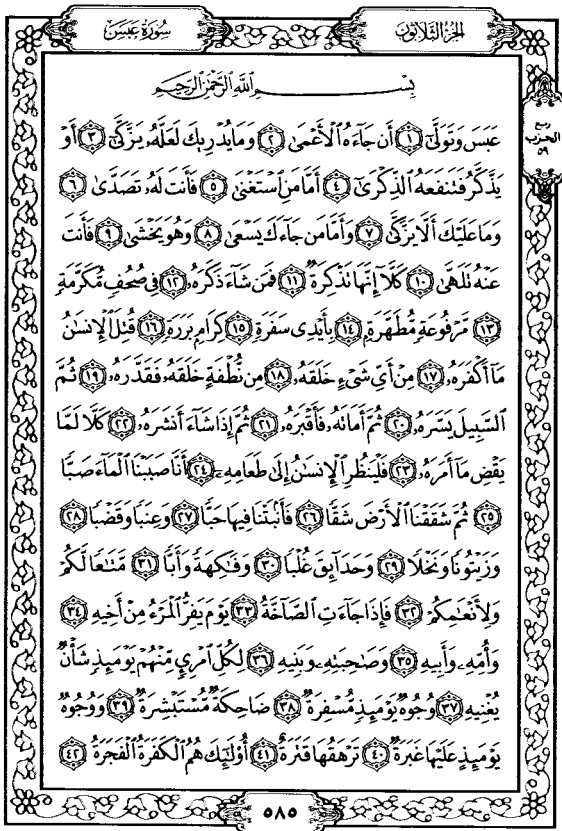 سُورَةُ عَبَسَ
الجُزْءُ الثَّلَاثُونَ
ربع
الحزب
٥٩
بِسْمِ ٱللَّهِ ٱلرَّحْمَٰنِ ٱلرَّحِيمِ
عَبَسَ وَتَوَلَّىٰٓ ١ أَن جَآءَهُ ٱلْأَعْمَىٰ ٢ وَمَا يُدْرِيكَ لَعَلَّهُۥ يَزَّكَّىٰٓ ٣ أَوْ
يَذَّكَّرُ فَتَنفَعَهُ ٱلذِّكْرَىٰٓ ٤ أَمَّا مَنِ ٱسْتَغْنَىٰ ٥ فَأَنتَ لَهُۥ تَصَدَّىٰ ٦
وَمَا عَلَيْكَ أَلَّا يَزَّكَّىٰ ٧ وَأَمَّا مَن جَآءَكَ يَسْعَىٰ ٨ وَهُوَ يَخْشَىٰ ٩ فَأَنتَ
عَنْهُ تَلَهَّىٰ ١٠ كَلَّآ إِنَّهَا تَذْكِرَةٌ ١١ فَمَن شَآءَ ذَكَرَهُۥ ١٢ فِى صُحُفٍ مُّكَرَّمَةٍ
١٣ مَّرْفُوعَةٍ مُّطَهَّرَةٍۭ ١٤ بِأَيْدِى سَفَرَةٍ ١٥ كِرَامٍۭ بَرَرَةٍ ١٦ قُتِلَ ٱلْإِنسَٰنُ
مَآ أَكْفَرَهُۥ ١٧ مِنْ أَىِّ شَىْءٍ خَلَقَهُۥ ١٨ مِن نُّطْفَةٍ خَلَقَهُۥ فَقَدَّرَهُۥ ١٩ ثُمَّ
ٱلسَّبِيلَ يَسَّرَهُۥ ٢٠ ثُمَّ أَمَاتَهُۥ فَأَقْبَرَهُۥ ٢١ ثُمَّ إِذَا شَآءَ أَنشَرَهُۥ ٢٢ كَلَّا لَمَّا
يَقْضِ مَآ أَمَرَهُۥ ٢٣ فَلْيَنظُرِ ٱلْإِنسَٰنُ إِلَىٰ طَعَامِهِۦٓ ٢٤ أَنَّا صَبَبْنَا ٱلْمَآءَ صَبًّا
٢٥ ثُمَّ شَقَقْنَا ٱلْأَرْضَ شَقًّا ٢٦ فَأَنۢبَتْنَا فِيهَا حَبًّا ٢٧ وَعِنَبًا وَقَضْبًا ٢٨
وَزَيْتُونًا وَنَخْلًا ٢٩ وَحَدَآئِقَ غُلْبًا ٣٠ وَفَٰكِهَةً وَأَبًّا ٣١ مَّتَٰعًا لَّكُمْ
وَلِأَنْعَٰمِكُمْ ٣٢ فَإِذَا جَآءَتِ ٱلصَّآخَّةُ ٣٣ يَوْمَ يَفِرُّ ٱلْمَرْءُ مِنْ أَخِيهِ ٣٤
وَأُمِّهِۦ وَأَبِيهِ ٣٥ وَصَٰحِبَتِهِۦ وَبَنِيهِ ٣٦ لِكُلِّ ٱمْرِئٍ مِّنْهُمْ يَوْمَئِذٍ شَأْنٌ
يُغْنِيهِ ٣٧ وُجُوهٌ يَوْمَئِذٍ مُّسْفِرَةٌ ٣٨ ضَاحِكَةٌ مُّسْتَبْشِرَةٌ ٣٩ وَوُجُوهٌ
يَوْمَئِذٍ عَلَيْهَا غَبَرَةٌ ٤٠ تَرْهَقُهَا قَتَرَةٌ ٤١ أُو۟لَٰٓئِكَ هُمُ ٱلْكَفَرَةُ ٱلْفَجَرَةُ ٤٢
٥٨٥